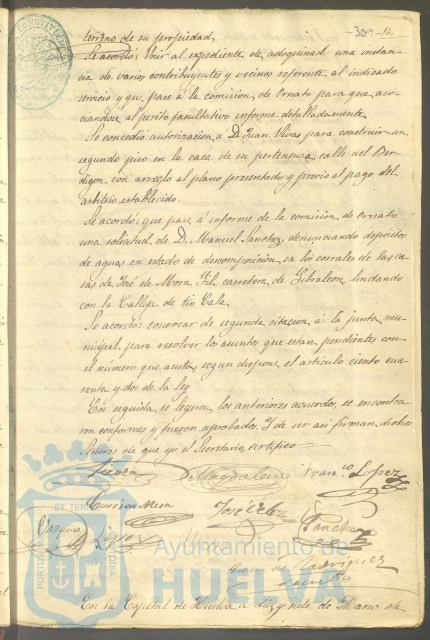 -309-
terreno de su propiedad.
Se acordó: Unir al expediente de adoquinado una instan-
cia de varios contribuyentes y vecinos referente al indicado
servicio y que pase á la comision de Ornato para que aso-
ciandose al perito facultativo informe detalladamente.
Se concedió autorizacion a D. Juan Vivas para construir un
segundo piso en la casa de su pertenencia calle del Ber-
digon con arreglo al plano presentado y previo el pago del
arbitrio establecido.
Se acordó: que pase á informe de la comision de Ornato
una solicitud de D. Manuel Sanchez, denunciando depositos
de aguas en estado de descomposicion en los corrales de las ca-
sas de José de Mora Gil carretera de Gibraleon, lindando
con la Calleja de tio Cala.
Se acordó: convocar de segunda citacion á la junta mu-
nicipal para resolver los asuntos que estan pendientes con
el número que asista, segun dispone el articulo ciento cua-
renta y dos de la ley.
En seguida se leyeron los anteriores acuerdos, se encontra-
ron conformes y fueron aprobados. Y de ser asi firman dichos
Señores de que yo el Secretario, certifico
Magdalena Franco. Lopez
Mesa José Velez
Lopez Sanchez
Rodriguez
Ayuntamiento de
HUELVA
En la Capital de Huelva á diez y siete de Mayo de